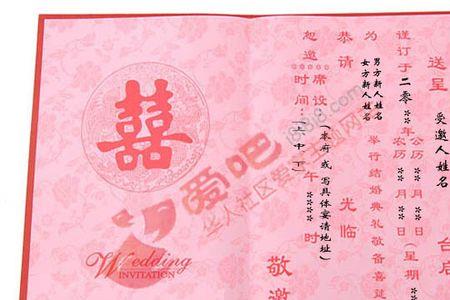 送呈 受邀人姓名 台启
谨订于二零**年 公历**月**日 (星期
农历**月**日
为 男方新人姓名 举行结婚典礼敬备喜
女方新人姓名
恭请 光临
恕邀
席设：(本府 或 写具体宴请地址)
时间：(上中下)午**时
敬邀
囍
Wedding
INVITATION
爱吧
华人社区